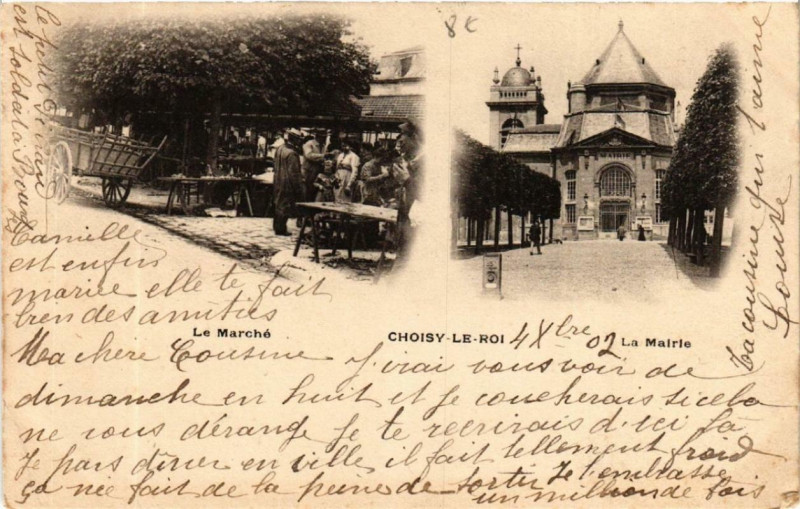 Le Marché
CHOISY-LE-ROI
La Mairie
4 Xbre 02
Ma chère Cousine J'irai vous voir de
dimanche en huit et je coucherais si cela
ne vous dérange je te recrirais d'ici là
Je pars dîner en ville il fait tellement froid
ça me fait de la peine de sortir Je t'embrasse
un million de fois
Ta cousine qui t'aime
Louise
Camille
est enfin
mariée elle te fait
bien des amitiés
le petit
est soldat à
8